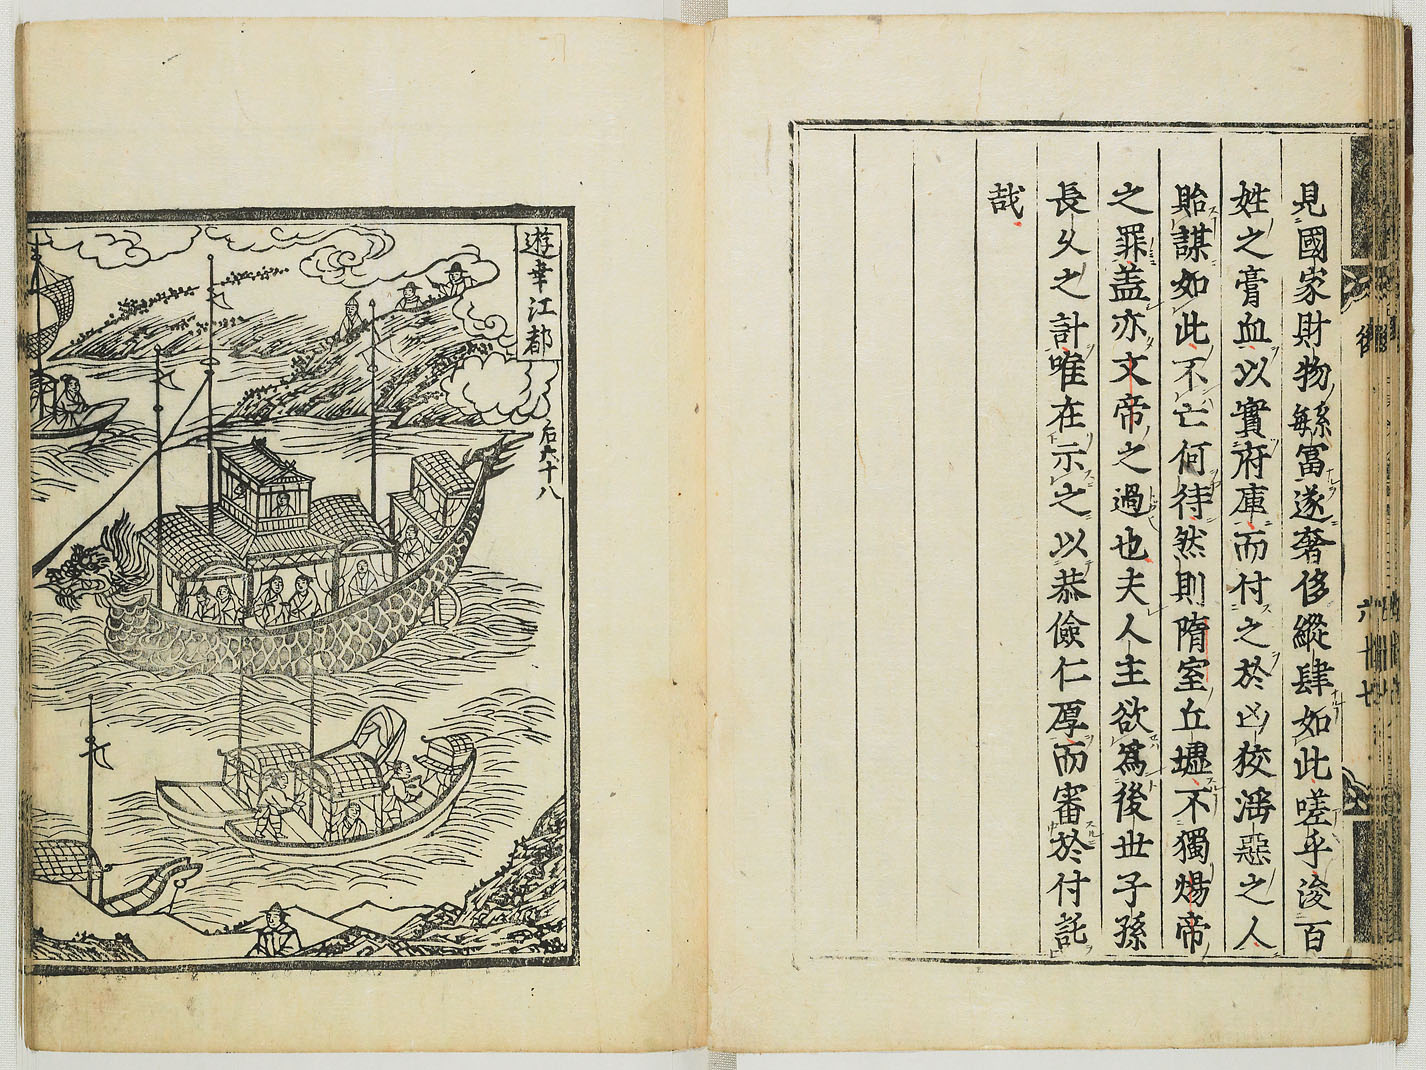 見國家財物緐冨遂奢侈縱肆如此嗟乎浚百
姓之膏血以實府庫而付之於凶狡滛惡之人
貽謀如此不亡何待然則隋室丘墟不獨煬帝
之罪蓋亦文帝之過也夫人主欲爲後世子孫
長久之計唯在示之以恭儉仁厚而審於付託
哉
後
六十七
遊幸江都
后六十八